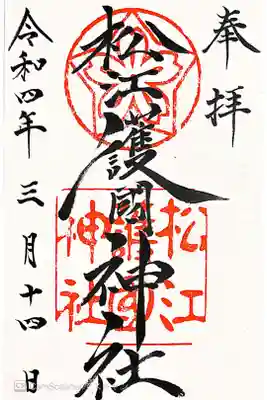 奉拝
松江護國神社
松江護國神社
令和四年三月十四日
CamScanner